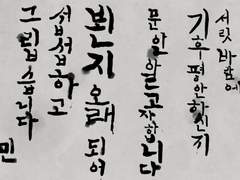 서릿 바람에
기후 평안하신지
문안 알고자 합니다
뵌지 오래 되어
섭섭하고
그립습니다
민